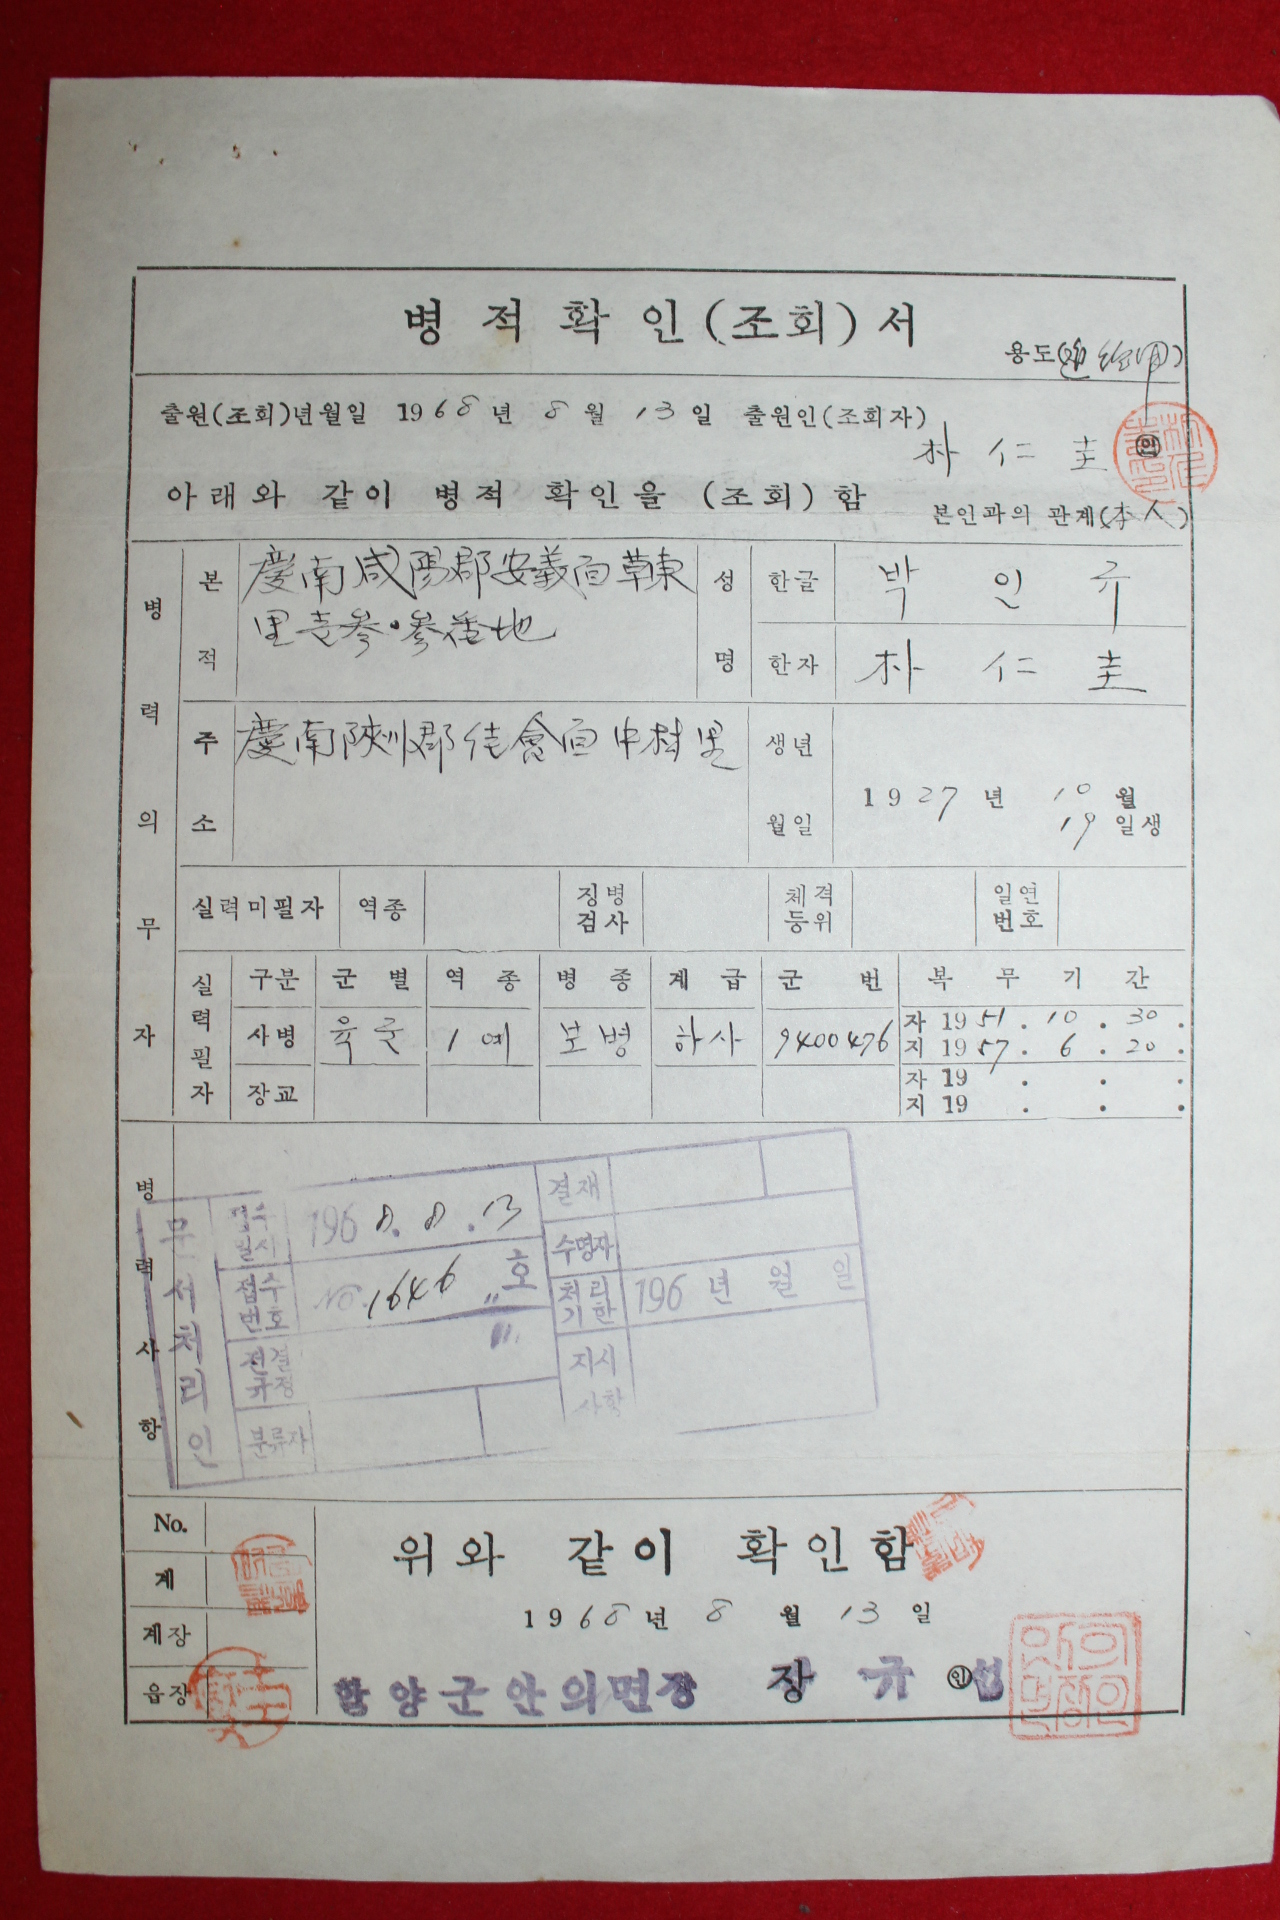 병적확인(조회)서
용도(
출원(조회)년월일 1968년 8월 13일 출원인(조회자)
朴仁圭 ㊞
아래와 같이 병적 확인을 (조회)함
본인과의 관계(本人)
병력의무자
본적
慶南咸陽郡安義面草東
里壱参·参番地
성명
한글
박인규
한자
朴仁圭
주소
慶南陜川郡佳會面中村里
생년월일
1927년 10월
19일생
실력미필자 역종 징병검사 체격등위 일연번호
실력필자
구분 군별 역종 병종 계급 군번 복무기간
사병 육군 1예 보병 하사 9400476
자 1951. 10. 30.
지 1957. 6. 20.
장교
자 19 . . .
지 19 . . .
병력사항
문서처리인
접수일시
1968. 8. 13
접수번호
No. 1646 호
전결규정
분류자
결재
수명자
처리기한
196 년 월 일
지시사항
No.
계
계장
읍장
위와 같이 확인함
1968년 8월 13일
함양군안의면장 장규섭 ㊞